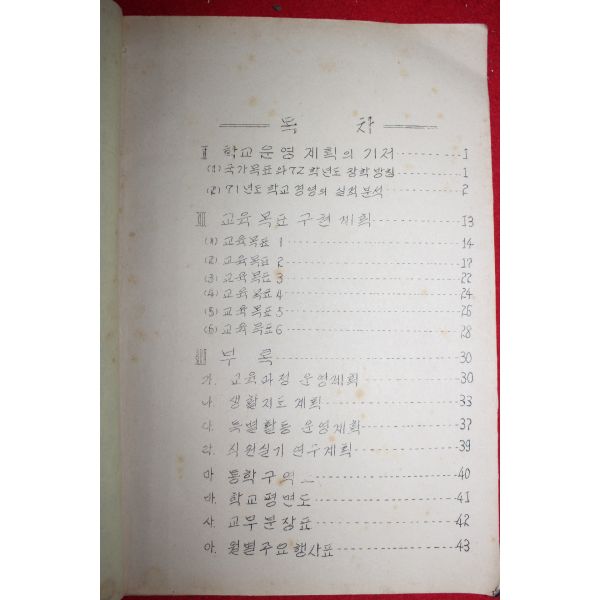 목 차
Ⅰ 학교운영 계획의 기저 1
(1) 국가목표와 72 학년도 장학방침 1
(2) 71년도 학교경영의 실희분석 2
Ⅱ 교육목표 구현 계획 13
(1) 교육목표 1 14
(2) 교육목표 2 17
(3) 교육목표 3 22
(4) 교육목표 4 24
(5) 교육목표 5 26
(6) 교육목표 6 28
Ⅲ 부록 30
가. 교육과정 운영계획 30
나. 생활지도 계획 33
다. 특별활동 운영계획 37
라. 직원실기 연구계획 39
마. 통학구역 40
바. 학교평면도 41
사. 교무분장표 42
아. 월별주요행사표 43